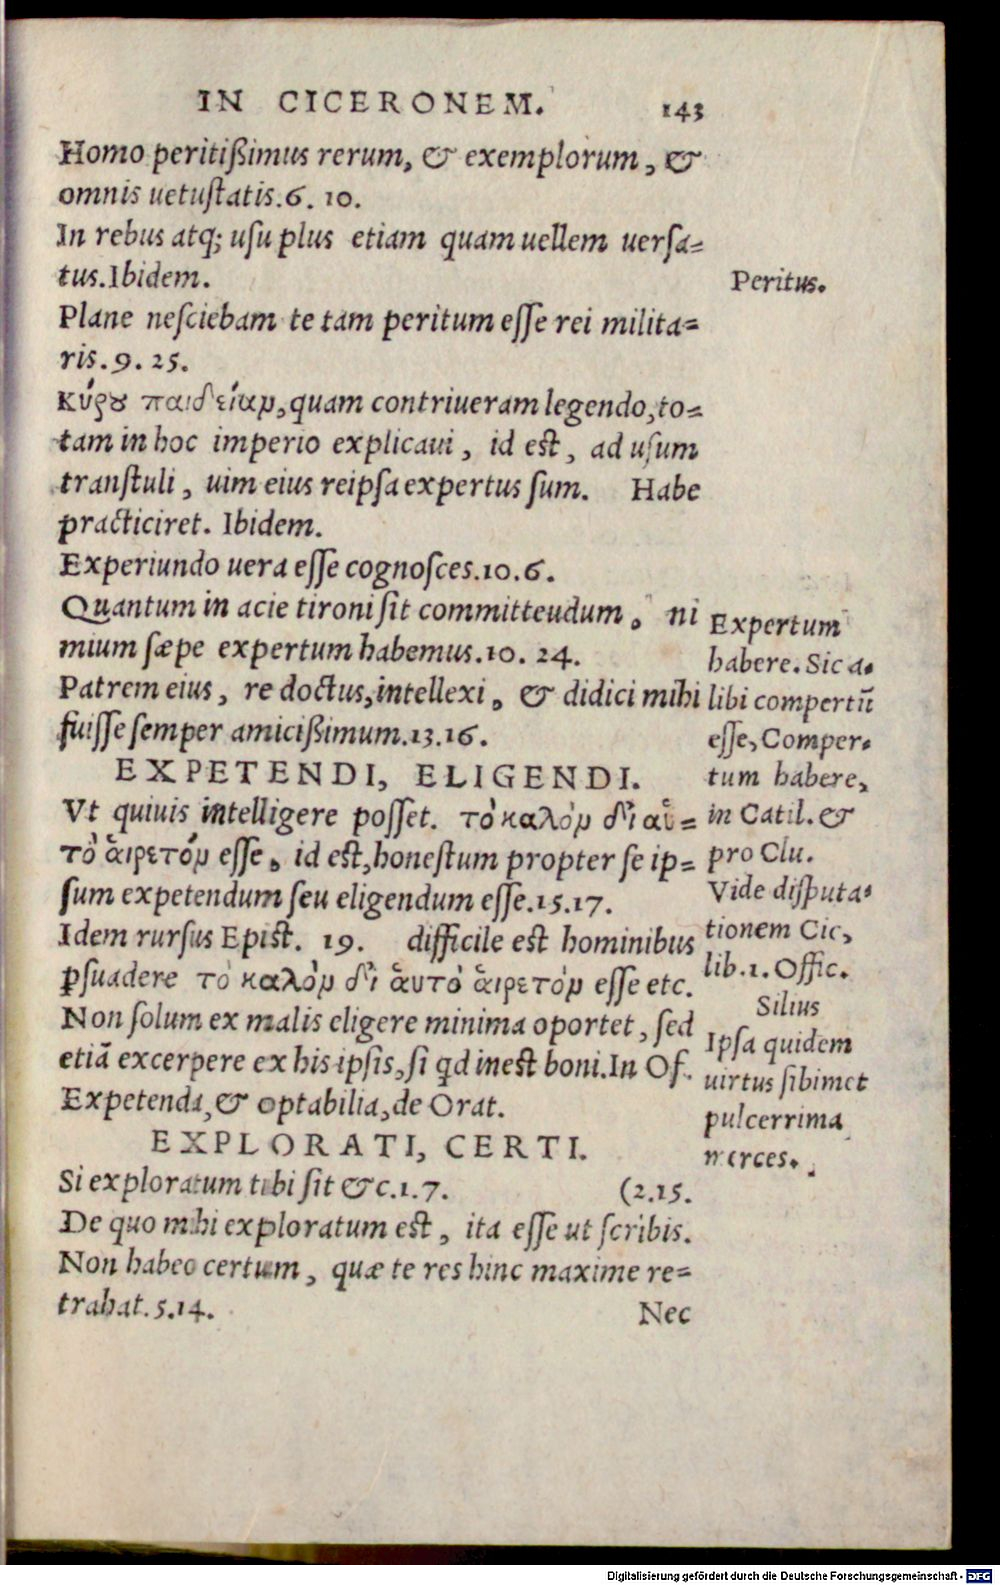 IN CICERONEM. 143
Homo peritißimus rerum, & exemplorum, &
omnis uetuſtatis.6. 10.
In rebus atq; uſu plus etiam quam uellem uerſa=
tus.Ibidem.
Plane neſciebam te tam peritum eſſe rei milita=
ris.9. 25.
κύρȣ παιδείαν,quam contriueram legendo,to=
tam in hoc imperio explicaui, id est, ad uſum
tranſtuli, uim eius reipſa expertus ſum. Habe
practiciret. Ibidem.
Experiundo uera eſſe cognoſces.10.6.
Quantum in acie tironi ſit committeudum. ni
mium sæpe expertum habemus.10. 24.
Patrem eius, re doctus,intellexi, & didici mihi
fuiſſe ſemper amicißimum.13.16.
EXPETENDI, ELIGENDI.
Vt quiuis intelligere poſſet. τὸ καλὸν δἰ αὑ=
τὸ ἁιρετὸν eſſe, id est,honeſtum propter ſe ip=
ſum expetendum ſeu eligendum eſſe.15.17.
Idem rurſus Epist. 19. difficile est hominibus
ꝑſuadere τὸ καλὸν δἰ ἁυτὸ ἁιρετὸν eſſe etc.
Non ſolum ex malis eligere minima oportet, ſed
etiā excerpere ex his ipſis, ſi qd inest boni.In Of.
Expetenda,& optabilia,de Orat.
EXPLORATI, CERTI.
Si exploratum tibi ſit &c.1.7. (2.15.
De quo mihi exploratum est, ita eſſe ut ſcribis.
Non habeo certum, quæ te res hinc maxime re=
trahat.5.14.
Nec
Peritus.
Expertum
habere. Sic a-
libi compertū
eſſe, Comper-
tum habere,
in Catil. &
pro Clu.
Vide diſputa-
tionem Cic,
lib.1. Offic.
Silius
Ipſa quidem
uirtus ſibimet
pulcerrima
merces.
Digitalisierung gefördert durch die Deutsche Forschungsgemeinschaft - DFG